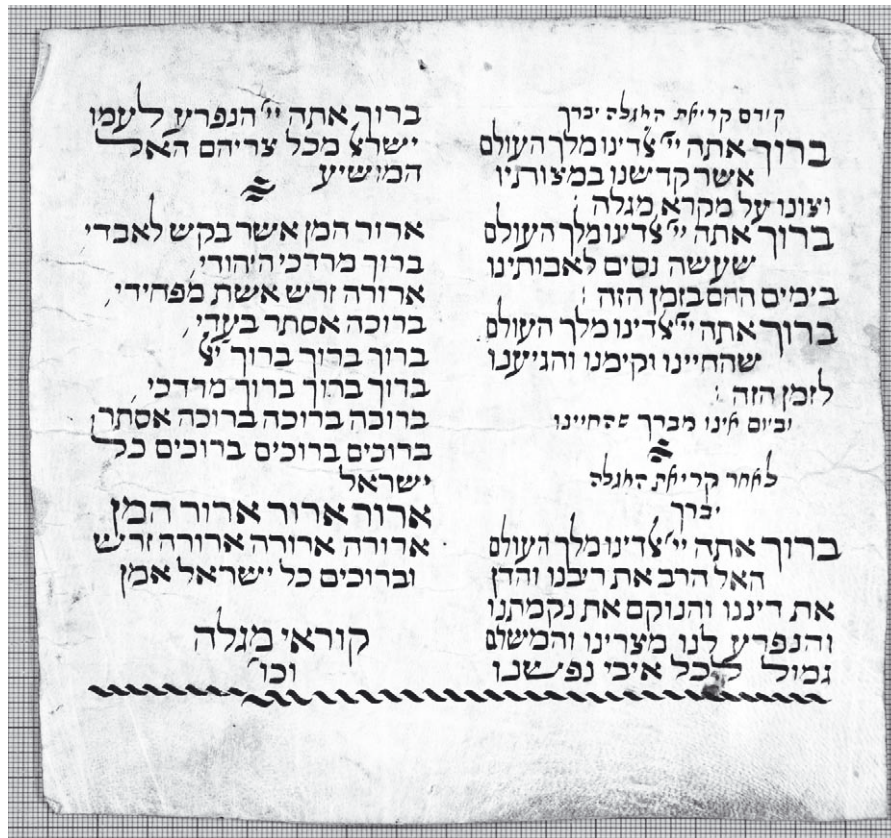 קודם קריאת המגלה יברך
ברוך אתה יי' אלדינו מלך העולם
אשר קדשנו במצותיו
וצונו על מקרא מגלה
ברוך אתה יי' אלדינו מלך העולם
שעשה נסים לאבותינו
בימים ההם בזמן הזה :
ברוך אתה יי' אלדינו מלך העולם
שהחיינו וקימנו והגיענו
לזמן הזה :
וביום אינו מברך שהחיינו
לאחר קריאת המגלה
יברך
ברוך אתה יי' אלדינו מלך העולם
האל הרב את ריבנו והדן
את דיננו והנוקם את נקמתנו
והנפרע לנו מצרינו והמשלם
גמול לכל איבי נפשנו
ברוך אתה יי' הנפרע לעמו
ישראל מכל צריהם האל
המושיע
ארור המן אשר בקש לאבדי
ברוך מרדכי היהודי,
ארורה זרש אשת מפחידי,
ברוכה אסתר בעדי,
ברוך ברוך ברוך יי'
ברוך ברוך ברוך מרדכי,
ברוכה ברוכה ברוכה אסתר
ברוכים ברוכים ברוכים כל
ישראל
ארור ארור ארור המן
ארורה ארורה ארורה זרש
וברוכים כל ישראל אמן
קוראי מגלה
וכו'